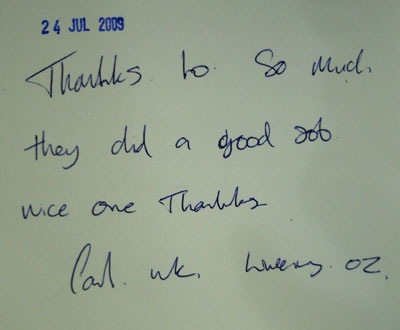 24 JUL 2009
Thanks to so much
they did a good Job.
nice one Thanks
Paul. uk. OZ.